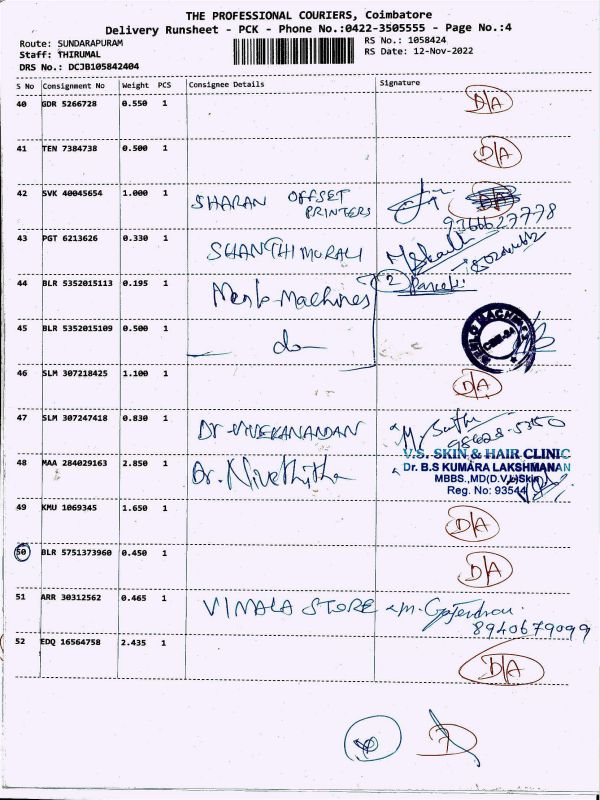 THE PROFESSIONAL COURIERS, Coimbatore
Delivery Runsheet - PCK - Phone No.:0422-3505555 - Page No.:4
Route: SUNDARAPURAM
RS No.: 1058424
Staff: THIRUMAL
RS Date: 12-Nov-2022
DRS No.: DCJB105842404
S No Consignment No Weight PCS Consignee Details Signature
40 GDR 5266728 0.550 1 D/A
41 TEN 7384738 0.500 1 D/A
42 SVK 40045654 1.000 1 SHARAN OFFSET PRINTERS
9366627778
43 PGT 6213626 0.330 1 SHANTHI MURALI
44 BLR 5352015113 0.195 1 Menlo Machines 2
45 BLR 5352015109 0.500 1 do
46 SLM 307218425 1.100 1 D/A
47 SLM 307247418 0.830 1 Dr VIVEKANANDAN
V.S. SKIN & HAIR CLINIC
48 MAA 284029163 2.850 1 Dr. Nivethitha Dr. B.S KUMARA LAKSHMANAN
MBBS.,MD(D.V.L)Skin
Reg. No: 93544
49 KMU 1069345 1.650 1 D/A
50 BLR 5751373960 0.450 1 D/A
51 ARR 30312562 0.465 1 VIMALA STORE
8940679099
52 EDQ 16564758 2.435 1 D/A